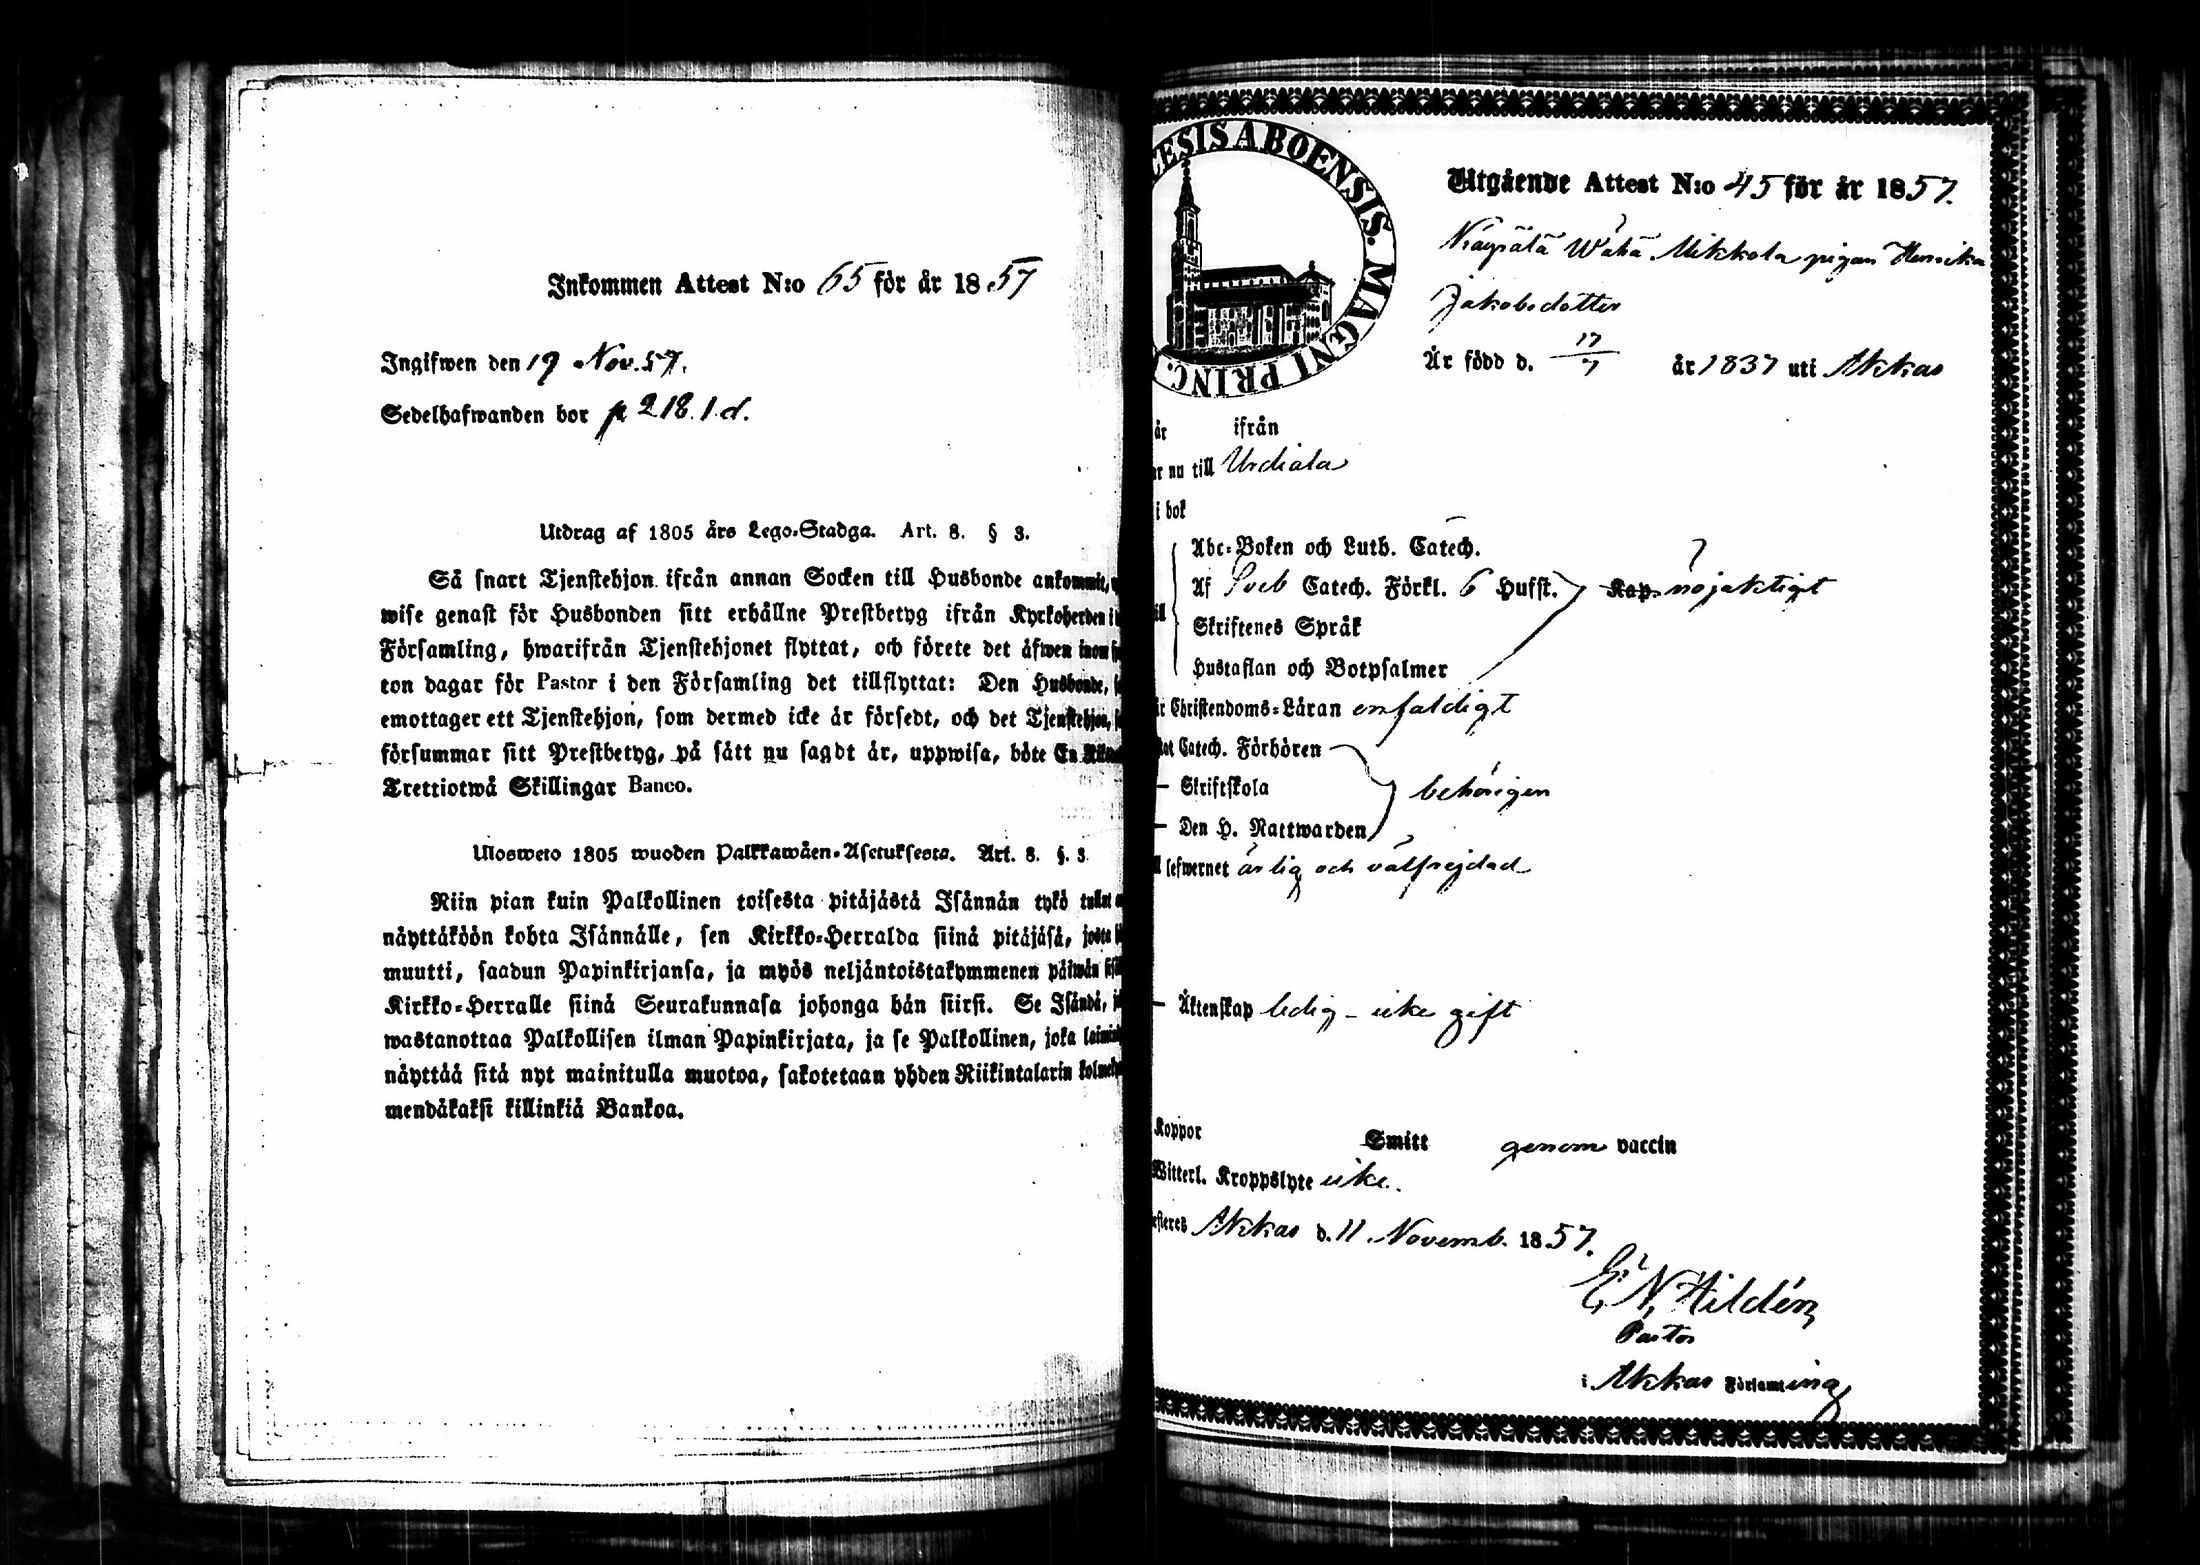 Inkommen Attest N:o 65 för år 1857
Ingifwen den 19 Nov. 57.
Sedelhafwanden bor p 218. 1. d.
Utdrag af 1805 års Lego-Stadga. Art. 8. § 3.
Så snart Tjenstehjon ifrån annan Socken till Husbonde ankommit,
wise genast för Husbonden sitt erhållne Prestbetyg ifrån Kyrkoherden i
Församling, hwarifrån Tjenstehjonet flyttat, och förete det äfwen inom
ton dagar för Pastor i den Församling det tillflyttat: Den Husbonde,
emottager ett Tjenstehjon, som dermed icke är försedt, och det Tjenstehjon,
försummar sitt Prestbetyg, på sätt nu sagdt är, uppwisa, böte En
Trettiotwå Skillingar Banco.
Ulosweto 1805 wuoden Palkkawäen-Asetuksesta. Art. 8. §. 3
Niin pian kuin Palkollinen toisesta pitäjästä Isännän tykö tullut
näyttäköön kohta Isännälle, sen Kirkko-Herralda siinä pitäjäsä, josta
muutti, saadun Papinkirjansa, ja myös neljäntoistakymmenen päiwän
Kirkko-Herralle siinä Seurakunnasa johonga hän siirsi. Se Isändä,
wastanottaa Palkollisen ilman Papinkirjata, ja se Palkollinen, joka
näyttää sitä nyt mainitulla muotoa, sakotetaan yhden Riikintalarin
mendäkaksi killinkiä Bankoa.
CESIS ABOENSIS. MAGNI PRINC.
Utgående Attest N:o 45 för år 1857.
Wähä Mikkola pigan Henrika
Jakobsdotter
Är född d. 17/7 år 1837 uti Akkas
år ifrån
nu till Urdiala
i bok
Abc-Boken och Luth. Catech.
Af Sveb Catech. Förkl. 6 Hufst. Kap. nöjaktigt
Skriftenes Språk
Hustaflan och Botpsalmer
Christendoms-Läran enfaldigt
Catech. Förhören
— Skriftskola behörigen
— Den H. Nattwarden
lefwernet ärlig och välfrejdad
— Äktenskap ledig – icke gift
Koppor Smitt genom vaccin
Witterl. Kroppslyte icke.
Akkas d. 11 Novemb. 1857.
E. N. Hildén
Pastor
i Akkas Församling